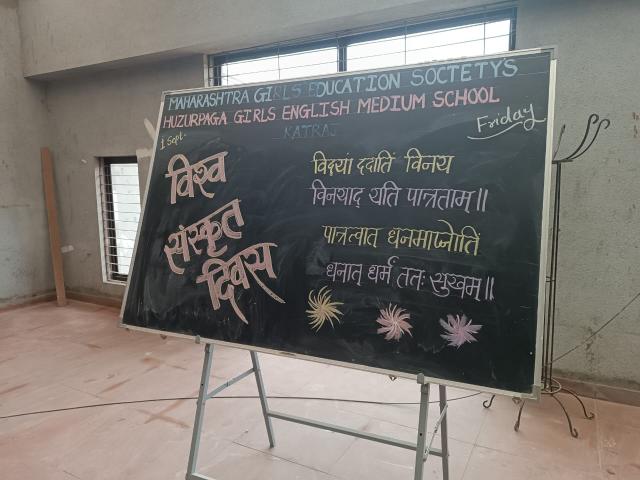 MAHARASHTRA GIRLS EDUCATION SOCTETYS
HUZURPAGA GIRLS ENGLISH MEDIUM SCHOOL
KATRAJ
1 Sept-
Friday
विश्व
संस्कृत
दिवस
विद्यां ददातिं विनय
विनयाद् याति पात्रताम्॥
पात्रत्वात् धनमाप्नोतिं
धनात् धर्मं ततः सुखम्॥